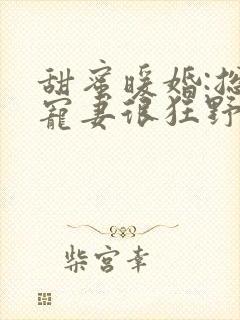 甜蜜暖婚:总
宠妻很狂野
柴宫幸